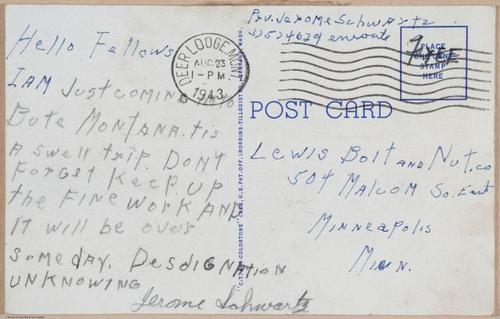 Hello Fellows
I AM Just coming into
Bute MONTANA. tis
A swell trip. DON'T
Forget Keep UP
the FINE WORK AND
IT will be over
someday. DESDIGNATION
UNKNOWING
Jerome Schwartz
DEER LODGE, MONT.
AUG 23
1-PM
1943
Pvt. Jerome Schwartz
enroute
Free
PLACE
STAMP
HERE
POST CARD
Lewis Bolt and Nut. co
504 Malcom So. East
Minneapolis
Minn.